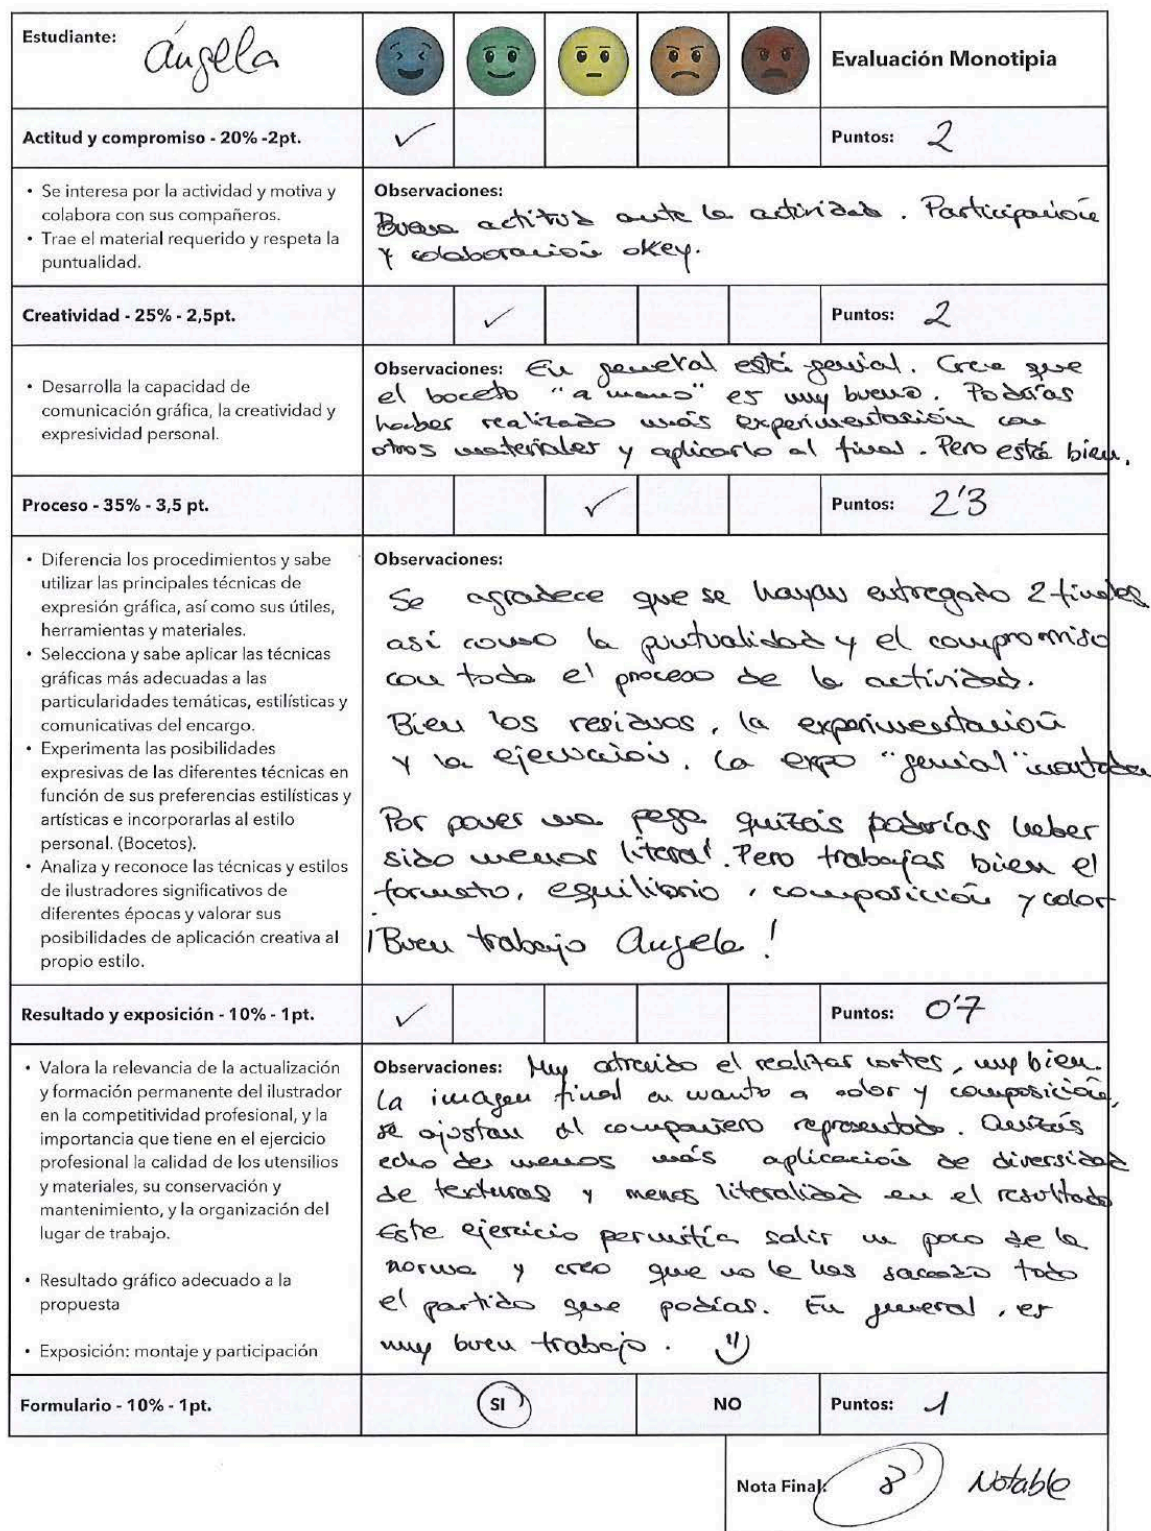 Estudiante: Ángela
Evaluación Monotipia
Actitud y compromiso - 20% -2pt.
Puntos: 2
• Se interesa por la actividad y motiva y
colabora con sus compañeros.
• Trae el material requerido y respeta la
puntualidad.
Observaciones:
Buena actitud ante la actividad. Participación
y colaboración okey.
Creatividad - 25% - 2,5pt.
Puntos: 2
• Desarrolla la capacidad de
comunicación gráfica, la creatividad y
expresividad personal.
Observaciones: En general está genial. Creo que
el boceto "a mano" es muy bueno. Podrías
haber realizado más experimentación con
otros materiales y aplicarlo al final. Pero está bien.
Proceso - 35% - 3,5 pt.
Puntos: 2'3
• Diferencia los procedimientos y sabe
utilizar las principales técnicas de
expresión gráfica, así como sus útiles,
herramientas y materiales.
• Selecciona y sabe aplicar las técnicas
gráficas más adecuadas a las
particularidades temáticas, estilísticas y
comunicativas del encargo.
• Experimenta las posibilidades
expresivas de las diferentes técnicas en
función de sus preferencias estilísticas y
artísticas e incorporarlas al estilo
personal. (Bocetos).
• Analiza y reconoce las técnicas y estilos
de ilustradores significativos de
diferentes épocas y valorar sus
posibilidades de aplicación creativa al
propio estilo.
Observaciones:
Se agradece que se hayan entregado 2 finales
así como la puntualidad y el compromiso
con todo el proceso de la actividad.
Bien los residuos, la experimentación
y la ejecución. La expo "genial" montada
Por poner una pega quizás podrías haber
sido menos literal. Pero trabajas bien el
formato, equilibrio, composición y color
¡Buen trabajo Ángela!
Resultado y exposición - 10% - 1pt.
Puntos: 0'7
• Valora la relevancia de la actualización
y formación permanente del ilustrador
en la competitividad profesional, y la
importancia que tiene en el ejercicio
profesional la calidad de los utensilios
y materiales, su conservación y
mantenimiento, y la organización del
lugar de trabajo.
• Resultado gráfico adecuado a la
propuesta
• Exposición: montaje y participación
Observaciones: Muy atrevido el realizar cortes, muy bien.
La imagen final en cuanto a color y composición,
se ajustan al compañero representado. Quizás
echo de menos más aplicación de diversidad
de texturas y menos literalidad en el resultado
Este ejercicio permitía salir un poco de la
norma y creo que no le has sacado todo
el partido que podías. En general, es
muy buen trabajo.
Formulario - 10% - 1pt.
SI
NO
Puntos: 1
Nota Final: 8 Notable